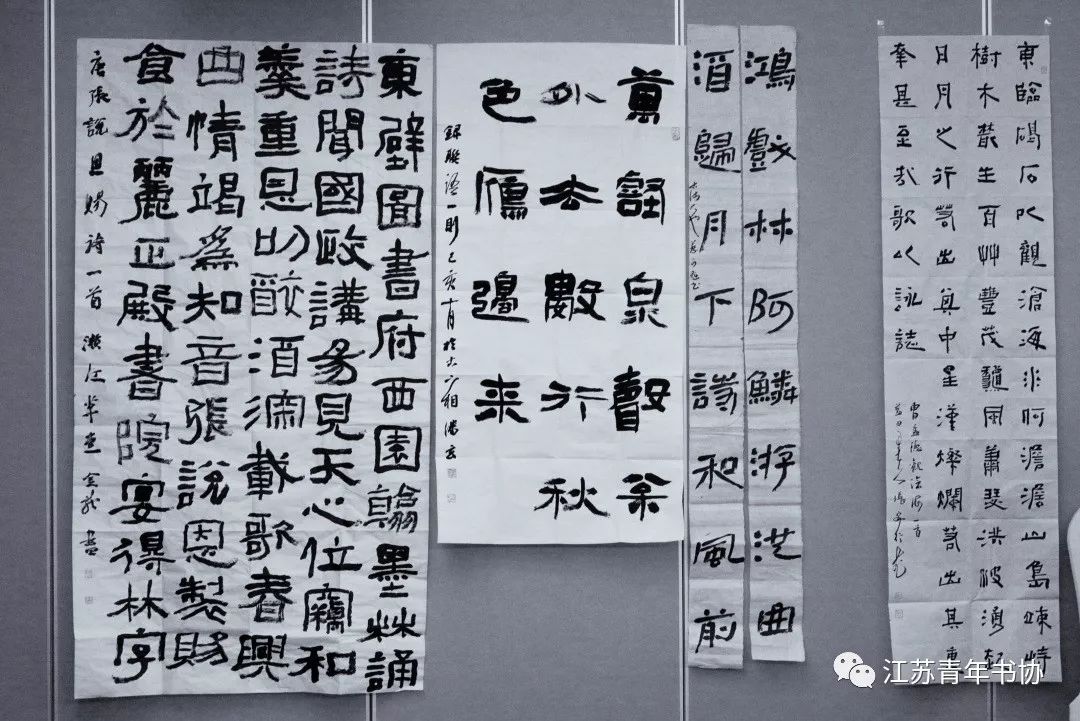 東臨碣石以觀滄海水何澹澹山島竦峙
樹木叢生百艸豐茂龝風蕭瑟洪波湧起
日月之行若出其中星漢燦爛若出其裏
幸甚至哉歌以詠誌
曹孟德觀滄海一首
鴻戲林阿鱗游洪曲
酒歸月下詩和風前
萬壑泉聲枀
外去數行秋
色雁邊来
錄聯語一則己亥十月於
東壁圖書府西園翰墨林誦
詩聞國政講易見天心位竊和
羹重恩叨醉酒深載歌春興
曲情竭為知音張說恩製賜
食於麗正殿書院宴得林字
唐張說恩賜詩一首 書
江苏青年书协